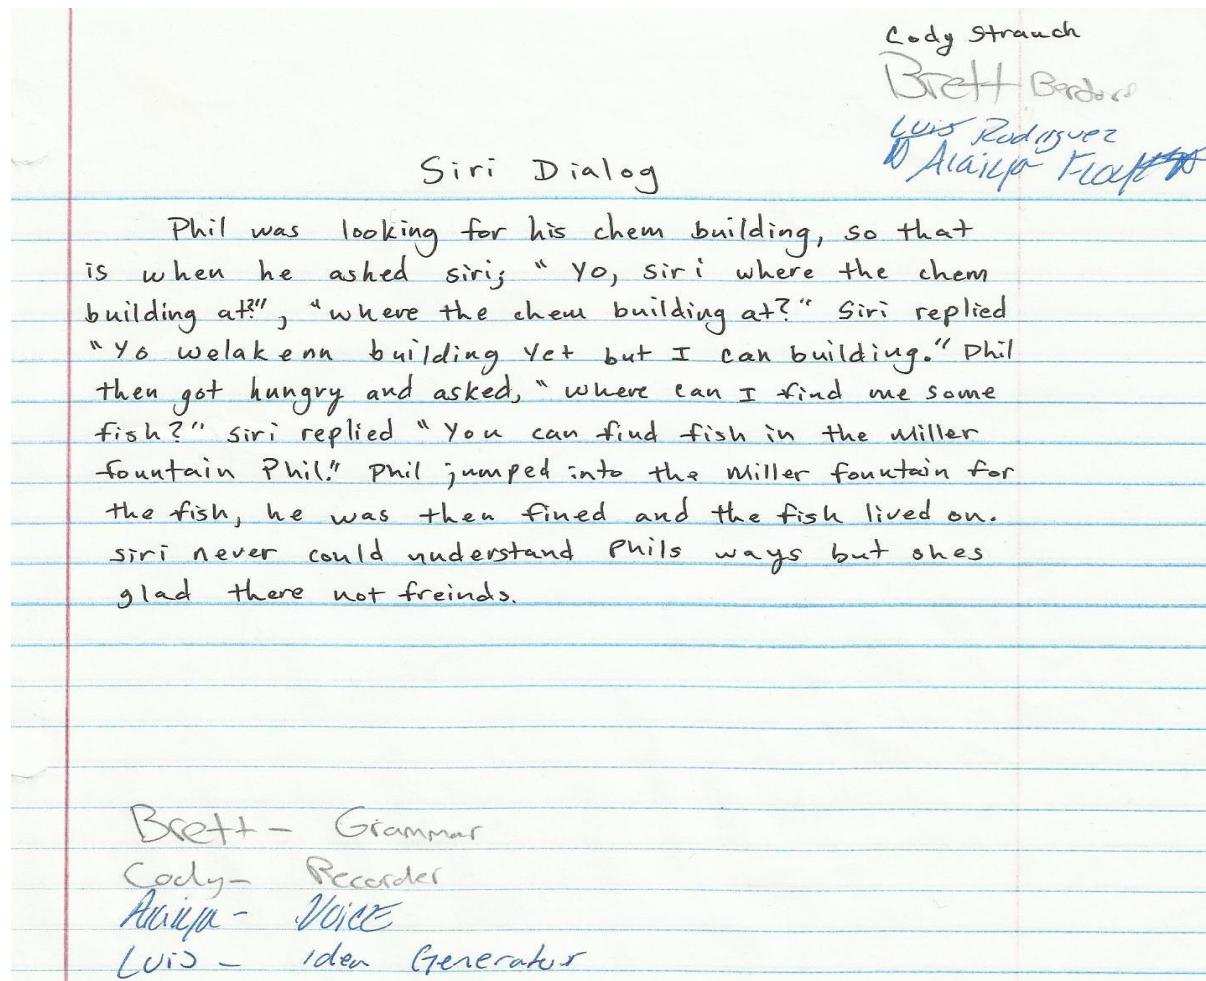 Cody Strauch
Brett
Luis Rodriguez
Siri Dialog
Phil was looking for his chem building, so that
is when he asked siri; " Yo, siri where the chem
building at?", "where the chem building at?" Siri replied
"Yo welakenn building Yet but I can building." Phil
then got hungry and asked, " where can I find me some
fish?" siri replied " You can find fish in the Miller
fountain Phil!" Phil jumped into the Miller fountain for
the fish, he was then fined and the fish lived on.
siri never could understand Phils ways but shes
glad there not freinds.
Brett - Grammar
Cody - Recorder
- VoicE
Luis - Idea Generator